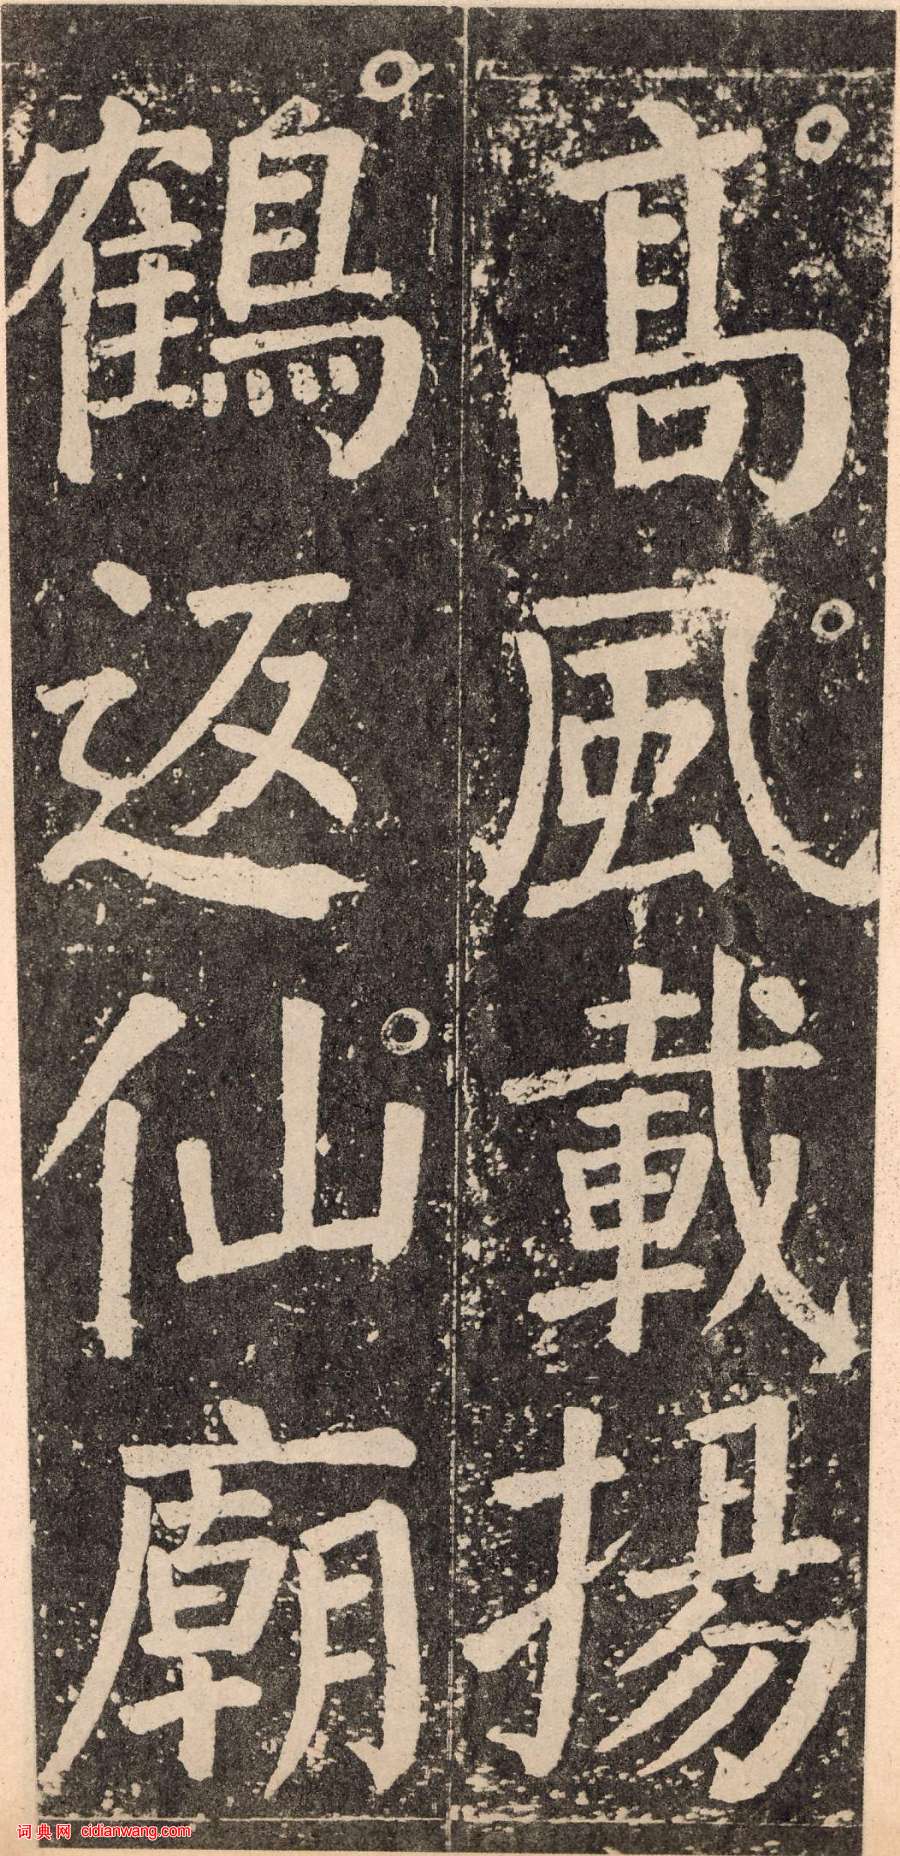 髙風載揚
鶴返仙廟
词典网 cidianwang.com